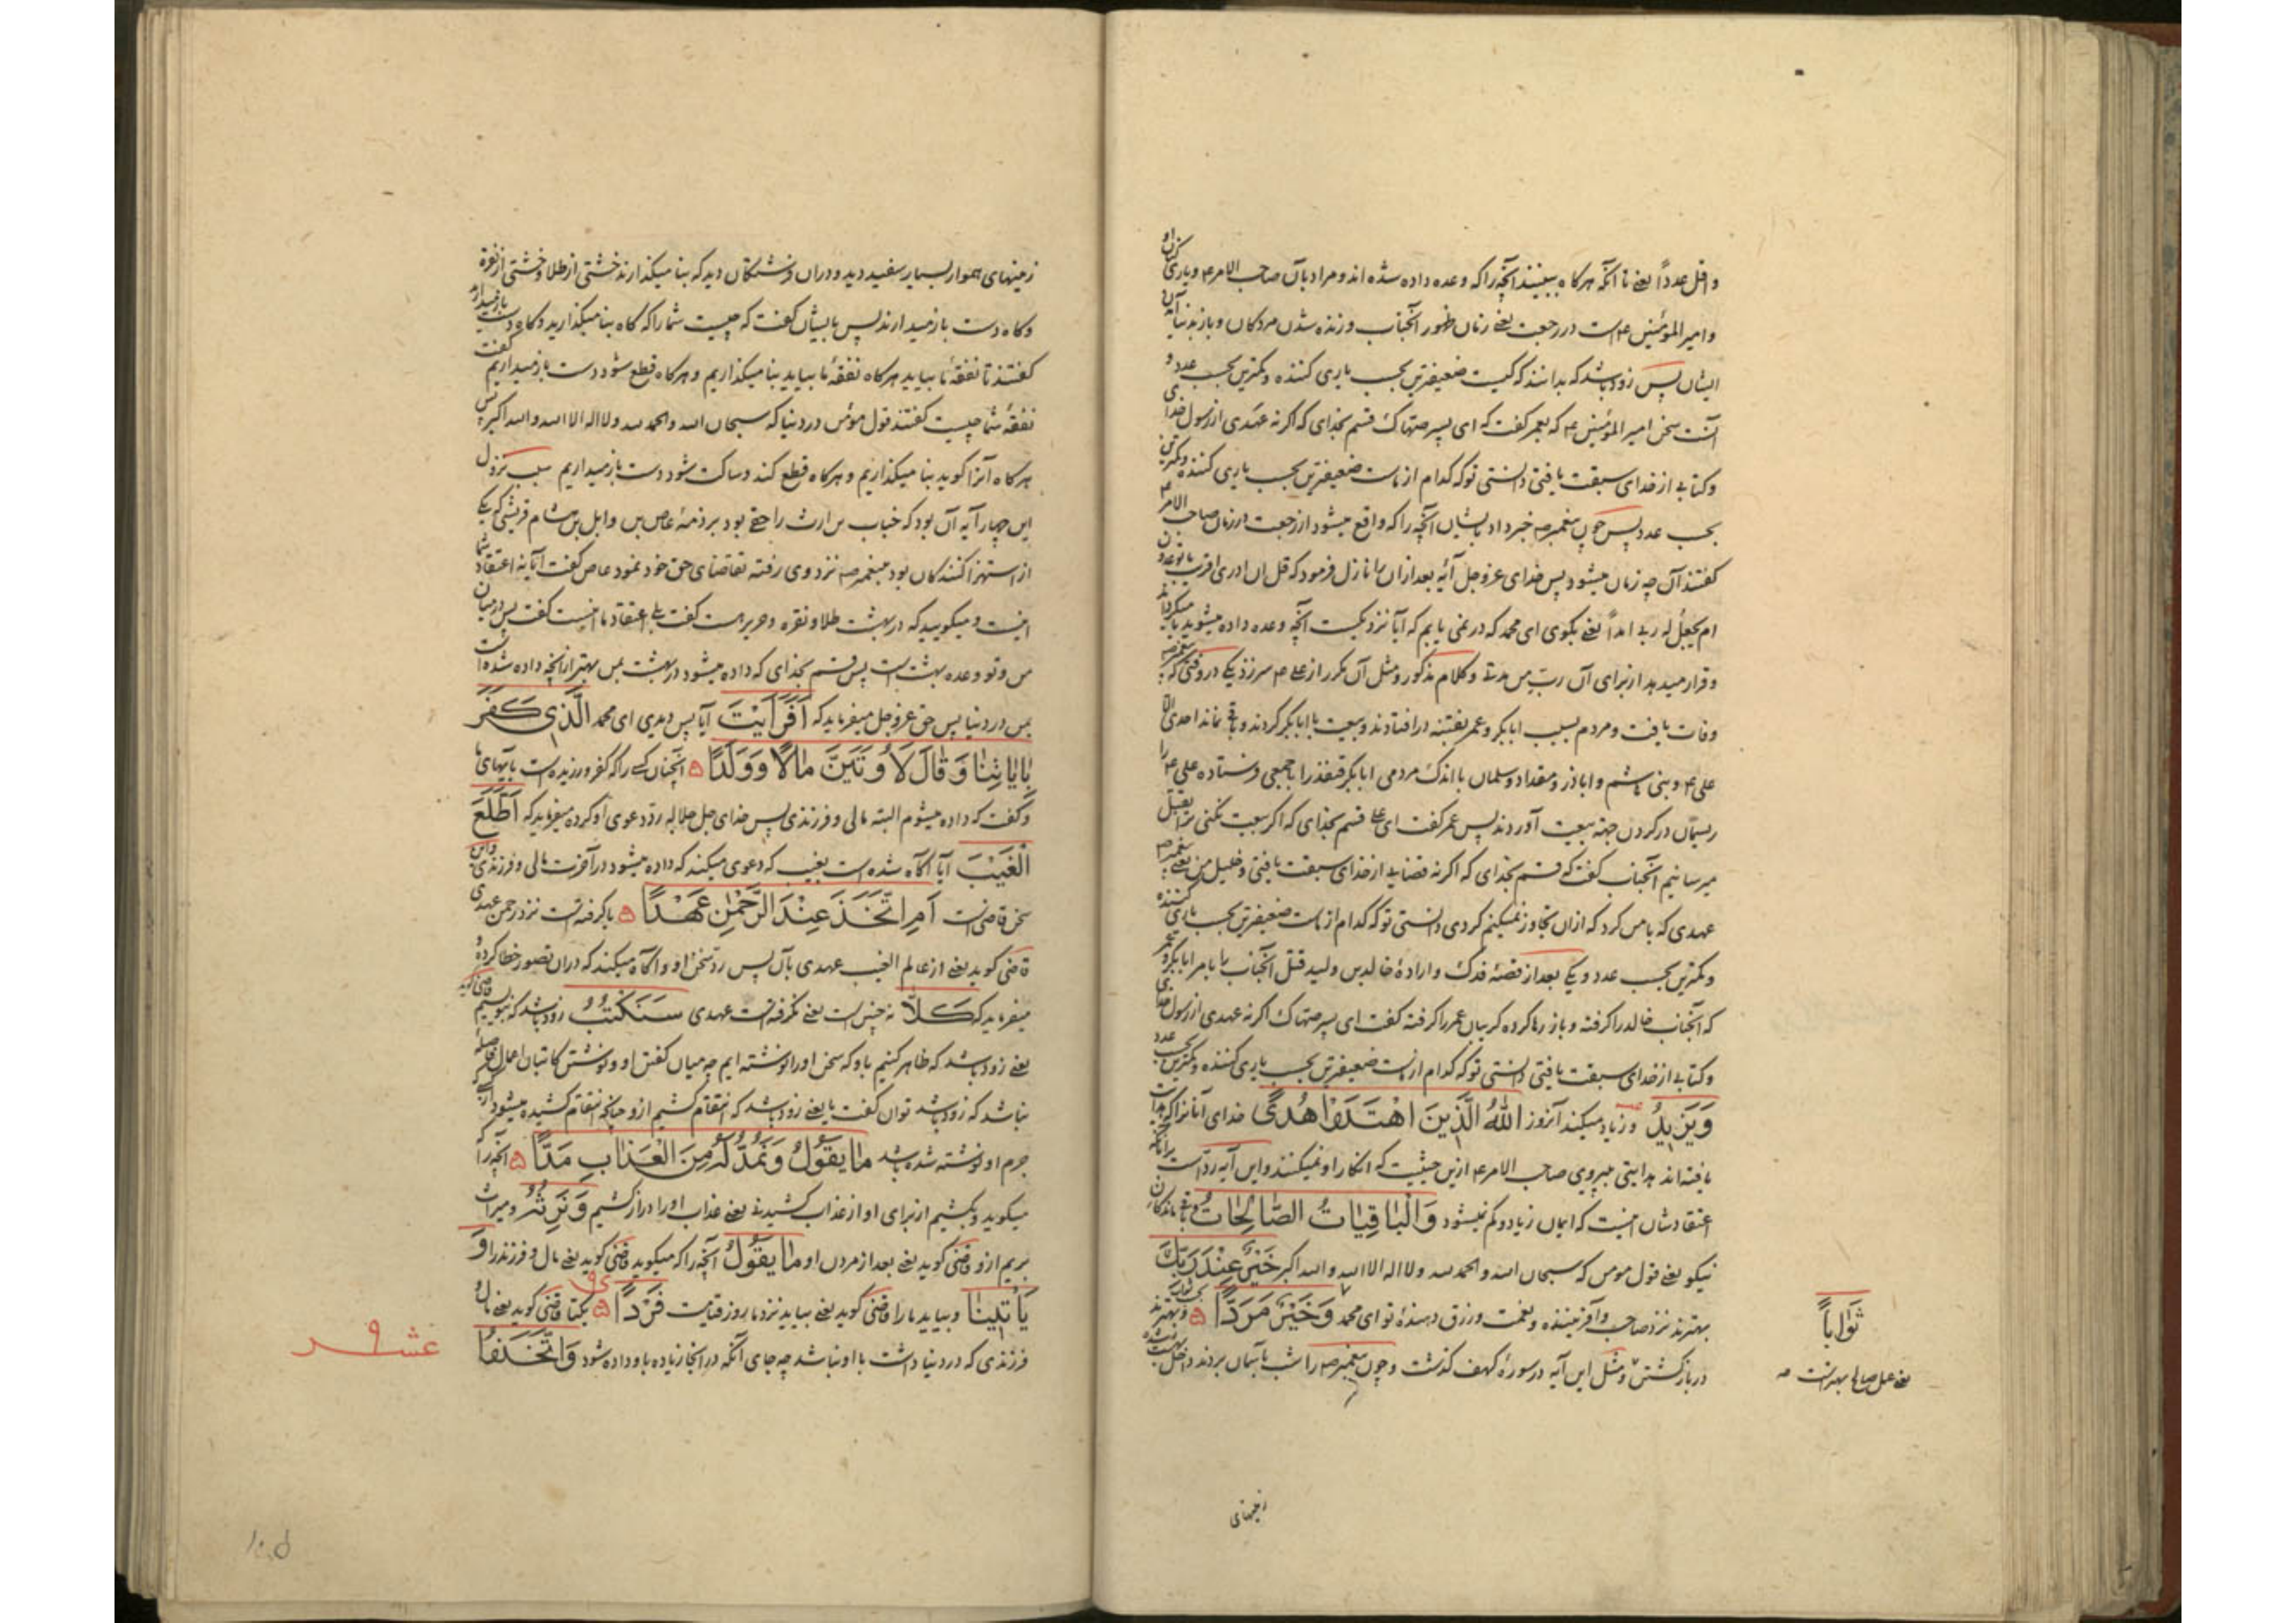 و اقل عدداً یعنی تا آنکه هرگاه ببینند آنچه را که وعده داده شده‌اند و مراد بآن صاحب الامر ع و یاری کنندگان او
و امیر المؤمنین ع است در رجعت یعنی زمان ظهور آنجناب و زنده شدن مردگان و باز بدنیا آمدن
ایشان پس زود باشد که بدانند که کیست ضعیفترین بحسب یاری کننده و کمترین بحسب عدد و
آنست سخن امیر المؤمنین ع که بعمر گفت که ای پسر صهاک قسم بخدای که اگر نه عهدی از رسول خدای
و کتابی از خدای سبقت یافتی دانستی تو که کدام از ماست ضعیفترین بحسب یاری کننده و کمترین
بحسب عدد پس چون پیغمبر ص خبر داد بایشان آنچه را که واقع میشود از رجعت در زمان صاحب الامر ع
گفتند آن چه زمان میشود پس خدای عز و جل آیه بعد از ان را نازل فرمود که قل ان ادری اقریب ما توعدون
ام یجعل له ربی امداً یعنی بگوی ای محمد که در نمی یابم که آیا نزدیکست آنچه وعده داده میشوید یا میگرداند
و قرار میدهد از برای آن رب من مدتی و کلام مذکور و مثل آن مکرر از علی ع سر زد یکی در وقتی که پیغمبر ص
وفات یافت و مردم بسبب ابابکر و عمر بفتنه در افتادند و بیعت با ابابکر کردند و باقی نماند احدی الا
علی ع و بنی هاشم و اباذر و مقداد و سلمان با اندک مردمی ابابکر قنفذ را با جمعی فرستاده علی ع را
ریسمان در گردن جهة بیعت آوردند پس عمر گفت ای علی قسم بخدای که اگر بیعت نکنی ترا بقتل
میرسانیم آنجناب گفت که قسم بخدای که اگر نه قضایی از خدای سبقت یافتی و خلیل من یعنی پیغمبر ص
عهدی که با من کرد که ازان تجاوز نمیکنم کردی دانستی تو که کدام از ماست ضعیفترین بحسب یاری کننده
و کمترین بحسب عدد و یکی بعد از قصهٔ فدک و ارادهٔ خالد بن ولید قتل آنجناب را بامر ابابکر و عمر
که آنجناب خالد را گرفته و باز رها کرده گریبان عمر را گرفته گفت ای پسر صهاک اگر نه عهدی از رسول خدای
و کتابی از خدای سبقت یافتی دانستی تو که کدام از ماست ضعیفترین بحسب یاری کننده و کمترین بحسب عدد
وَيَزِيدُ و زیاد میکند آنروز اللهُ الَّذِينَ اهْتَدَوْا هُدًى خدای آنانرا که هدایت
یافته‌اند هدایتی بپیروی صاحب الامر ع ازین حیثیت که انکار او نمیکنند و این آیه رد است بر آنانکه
اعتقادشان اینست که ایمان زیاد و کم نمیشود وَالْبَاقِيَاتُ الصَّالِحَاتُ و باقی ماندگان
نیکو یعنی قول مومن که سبحان الله و الحمد لله و لا اله الا الله و الله اکبر خَيْرٌ عِنْدَ رَبِّكَ
بهترند نزد صاحب و آفریننده و نعمت و رزق دهندهٔ تو ای محمد وَخَيْرٌ مَرَدًّا و بهترند
در بازگشتن و مثل این آیه در سورهٔ کهف گذشت و چون پیغمبر ص را شب بآسمان بردند داخل بهشت شده
ثَوَابًا
یعنی عمل صالح بهتر است
زمینهای
زمینهای هموار بسیار سفید دید و دران فرشتگان دید که بنا میگذارند خشتی از طلا و خشتی از نقره
و گاه دست باز میدارند پس بایشان گفت که چیست شما را که گاه بنا میگذارید و گاه دست باز میدارید
گفتند تا نفقهٔ ما بیاید هرگاه نفقهٔ ما بیاید بنا میگذاریم و هرگاه قطع شود دست باز میداریم گفت
نفقهٔ شما چیست گفتند قول مؤمن در دنیا که سبحان الله و الحمد لله و لا اله الا الله و الله اکبر پس
هرگاه آنرا گوید بنا میگذاریم و هرگاه قطع کند و ساکت شود دست باز میداریم سبب نزول
این چهار آیه آن بود که خباب بن ارث را حقی بود بر ذمهٔ عاص بن وایل بن هشام قریشی که یکی
از استهزا کنندگان بود به پیغمبر ص نزد وی رفته تقاضای حق خود نمود عاص گفت آیا نه اعتقاد شما
اینست و میگویید که در بهشت طلا و نقره و حریر هست گفت بلی اعتقاد ما اینست گفت پس در میان
من و تو وعده بهشت است پس قسم بخدای که داده میشود در بهشت بمن بهتر از آنچه داده شده است
بمن در دنیا پس حق عز و جل میفرماید که أَفَرَأَيْتَ آیا پس دیدی ای محمد الَّذِي كَفَرَ
بِآيَاتِنَا وَقَالَ لَأُوتَيَنَّ مَالًا وَوَلَدًا آنچنان کسی را که کفر ورزیده است بآیتهای ما
و گفت که داده میشوم البته مالی و فرزندی پس خدای جل جلاله رد دعوی او کرده میفرماید که أَطَّلَعَ
الْغَيْبَ آیا آگاه شده است بغیب که دعوی میکند که داده میشود در آخرت مالی و فرزندی و این
سخن قاضی است أَمِ اتَّخَذَ عِنْدَ الرَّحْمٰنِ عَهْدًا یا گرفته است نزد رحمن عهدی
قاضی گوید یعنی از عالم الغیب عهدی بآن پس رد سخن او و آگاه میکند که دران تصور خطا کرده و
میفرماید که كَلَّا نه چنین است یعنی نگرفته است عهدی سَنَكْتُبُ زود باشد که بنویسیم قاضی گوید
یعنی زود باشد که ظاهر کنیم باو که سخن او را نوشته ایم چه میان گفتن او و نوشتن کاتبان اعمال فاصله
نباشد که زود باشد توان گفت یا یعنی زود باشد که انتقام کشیم ازو چنانچه انتقام کشیده میشود از کسی که
جرم او نوشته شده باشد مَا يَقُولُ وَنَمُدُّ لَهُ مِنَ الْعَذَابِ مَدًّا آنچه را
میگوید و بکشیم از برای او از عذاب کشیدنی یعنی عذاب او را دراز کشیم وَنَرِثُهُ و میراث
بریم ازو قاضی گوید یعنی بعد از مردن او مَا يَقُولُ آنچه را که میگوید قاضی گوید یعنی مال و فرزند را وَ
يَأْتِينَا و بیاید ما را قاضی گوید یعنی بیاید نزد ما روز قیامت فَرْدًا یکتا قاضی گوید یعنی مال و
فرزندی که در دنیا داشت با او نباشد چه جای آنکه در آنجا زیاده باو داده شود وَاتَّخَذُوا
عشر